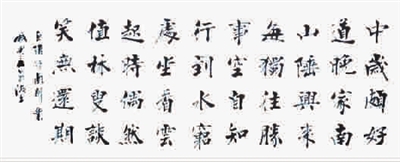 中歲頗好
道晚家南
山陲興來
每獨往勝
事空自知
行到水窮
處坐看雲
起時偶然
值林叟談
笑無還期